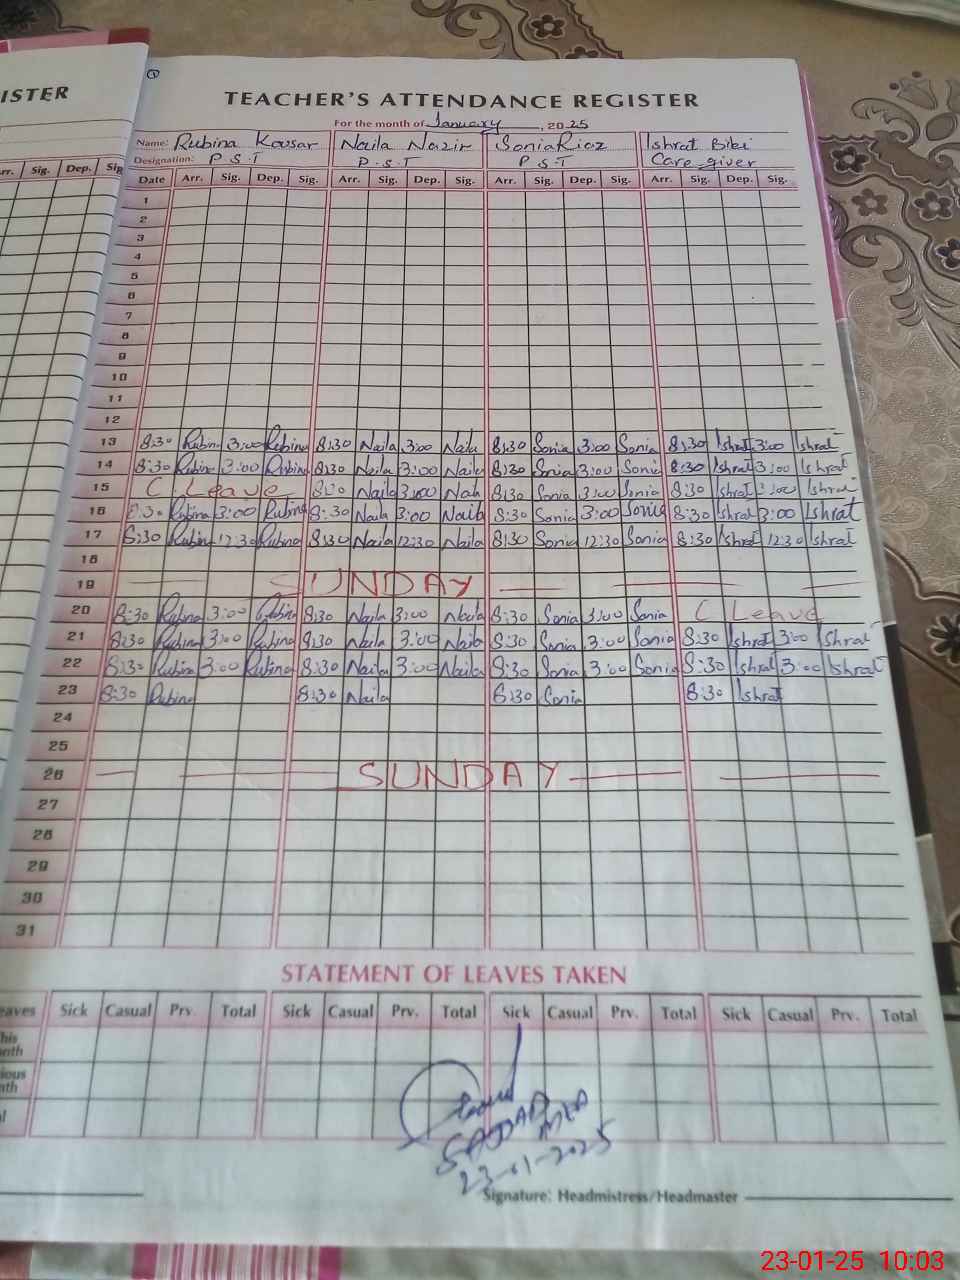 ISTER
Arr. Sig. Dep. Sig
TEACHER'S ATTENDANCE REGISTER
For the month of January, 2025
Name: Rubina Kousar Naila Nazir Sonia Riaz Ishrat Bibi
Designation: P.S.T P.S.T P.S.T Care giver
Date Arr. Sig. Dep. Sig. Arr. Sig. Dep. Sig. Arr. Sig. Dep. Sig. Arr. Sig. Dep. Sig.
1
2
3
4
5
6
7
8
9
10
11
12
13 8:30 Rubina 3:00 Rubina 8:30 Naila 3:00 Naila 8:30 Sonia 3:00 Sonia 8:30 Ishrat 3:00 Ishrat
14 8:30 Rubina 3:00 Rubina 8:30 Naila 3:00 Naila 8:30 Sonia 3:00 Sonia 8:30 Ishrat 3:00 Ishrat
15 C. Leave 8:30 Naila 3:00 Naila 8:30 Sonia 3:00 Sonia 8:30 Ishrat 3:00 Ishrat
16 8:30 Rubina 3:00 Rubina 8:30 Naila 3:00 Naila 8:30 Sonia 3:00 Sonia 8:30 Ishrat 3:00 Ishrat
17 8:30 Rubina 12:30 Rubina 8:30 Naila 12:30 Naila 8:30 Sonia 12:30 Sonia 8:30 Ishrat 12:30 Ishrat
18
19 SUNDAY
20 8:30 Rubina 3:00 Rubina 8:30 Naila 3:00 Naila 8:30 Sonia 3:00 Sonia C Leave
21 8:30 Rubina 3:00 Rubina 8:30 Naila 3:00 Naila 8:30 Sonia 3:00 Sonia 8:30 Ishrat 3:00 Ishrat
22 8:30 Rubina 3:00 Rubina 8:30 Naila 3:00 Naila 8:30 Sonia 3:00 Sonia 8:30 Ishrat 3:00 Ishrat
23 8:30 Rubina 8:30 Naila 8:30 Sonia 8:30 Ishrat
24
25
26 SUNDAY
27
28
29
30
31
STATEMENT OF LEAVES TAKEN
eaves Sick Casual Prv. Total Sick Casual Prv. Total Sick Casual Prv. Total Sick Casual Prv. Total
his
nth
ious
nth
al
SAJJAD
MEA
23-01-2025
Signature: Headmistress/Headmaster
23-01-25 10:03